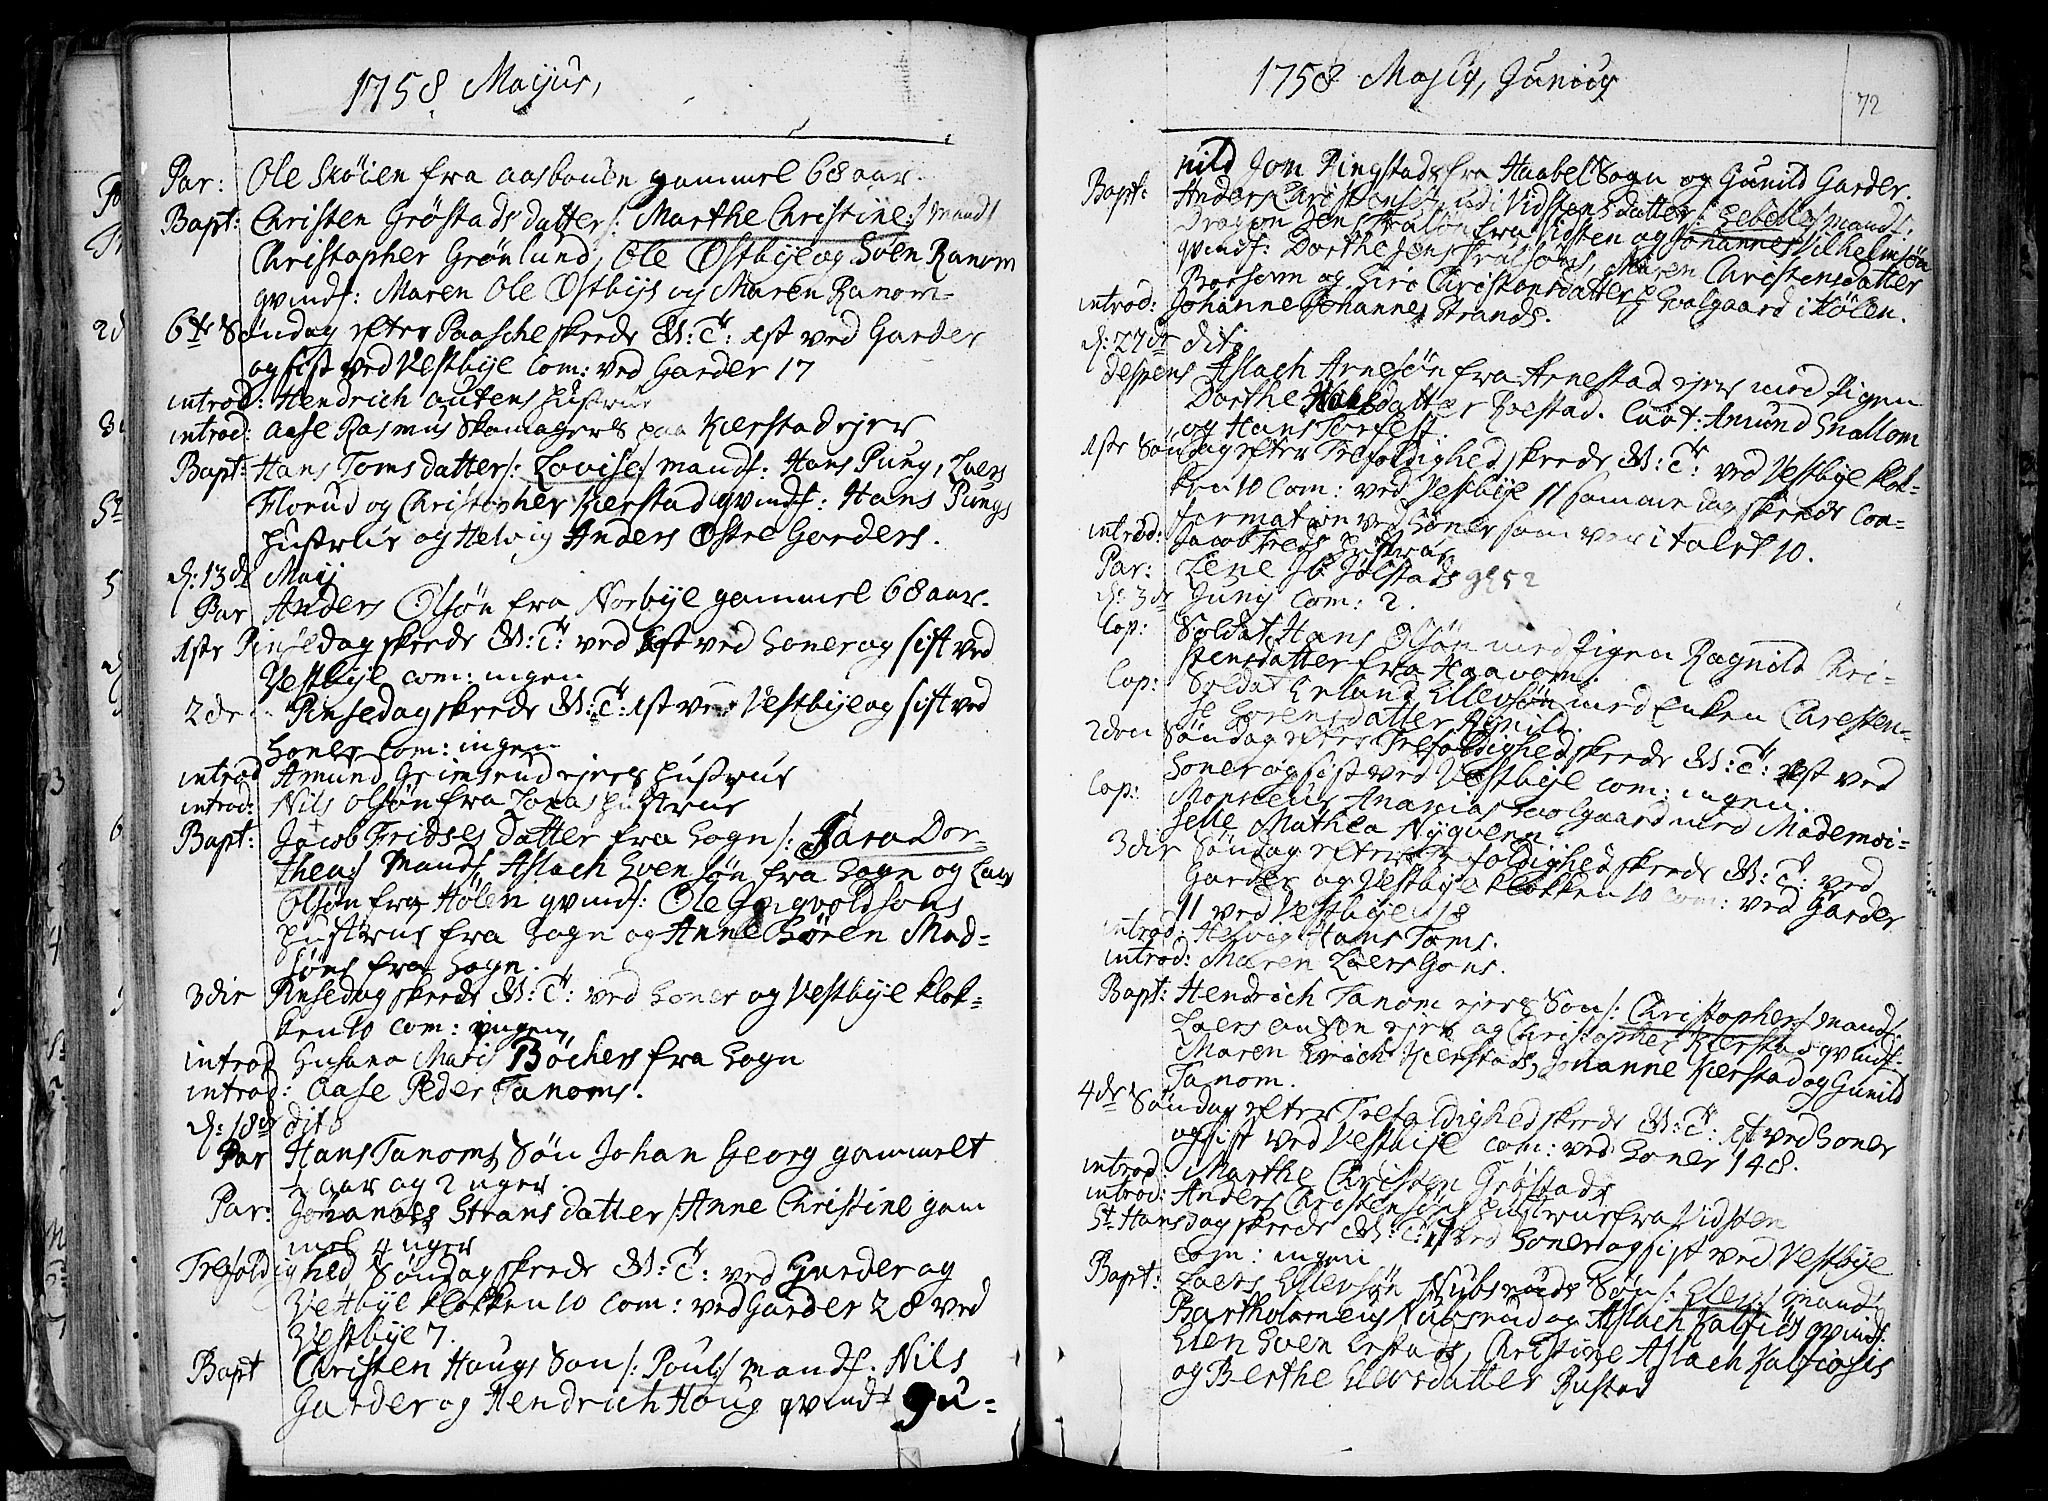 1758 Maijus,
Par: Ole Skøien fra aasbonden gammel 68 aar.
Bapt: Christen Grøstads datter /: Marthe Christine :/ mandf
Christopher Grønlund, Ole Østbye og Soen Ranom
qvindf: Maren Ole Østbijs og Maren Ranom
6te Søndag efter Paasche skrede G: T: 1st ved Garder
og sist ved Vestbije Com: ved Garder 17
introd: Hendrich autens hustrue
introd: Aase Rasmus Skomagers paa Kierstad ejer
Bapt: Hans Toms datter /: Lovise :/ mandf: Hans Pung, Laers
Florud og Christopher Kierstad qvindf: Hans Pungs
hustrue og Helvig Anders Østre Garders.
d: 13de Maij
Par Anders Olsøn fra Norbije gammel 68 aar.
1ste Pinsedag skrede G: T: ved 1st ved Soner og sist ved
Vestbije com: ingen
2de Pinsedag skrede G: T: 1st ved Vestbije og sist ved
Soner Com: ingen
introd Amund Grimsrud ejers hustrue
introd: Nils Olsøn fra hustrue
Bapt: Jacob Fridses datter fra Sogn /: Sara Dor-
thea :/ Mandf, Aslach Svensøn fra Sogn og Lars
Olsøn fra Hølen qvindf: Ole Ingvoldsøns
hustrue fra Sogn og Anne Søren Mad-
søns fra Sogn.
3die Pinsedag skrede G: T: ved Soner og Vestbije klok-
ken 10 com: ingen
introd Susana Matis Bøchers fra Sogn
introd: Aase Peder Tanoms.
d: 18de dito
Par Hans Tanoms Søn Johan Georg gammelt
aar og 2 uger.
Par: Johannes Strans datter / Anne Christine gam
mel 4 uger
Trefoldighed Søndag skrede G: T: ved Garder og
Vestbije klokken 10 Com: ved Garder 28 ved
Vestbije 7.
Bapt Christen Haugs Søn /: Poul :/ mandf. Nils
Garder og Hendrich Houg qvindf Gu-
1758 Majus, Junius
72
nild Jon Ringstads fra Haabel Sogn og Gunild Garder.
Bapt: Anders Christensøn Vidstens datter /: Lebelle :/ mandf:
Dragon Jens fra Vidsten og Johannes Vilhelmsøn
qvindf: Dorthe Jens, Maren Christensdatter
og Siri Christensdatter Hvalgaard i Hølen.
introd: Johanne Johannes Strands.
d: 27de dito
despens Aslach Arnesøn fra Arnestad ejer med Pigen
Dorthe Hansdatter Roestad. Caut: Amund Snallom
og Hans Torfest.
1ste Søndag efter Trefoldighed skrede G: T: ved Vestbije klok-
ken 10 Com: ved Vestbije 11 samme dag skrede Con-
formation ved Soner som var i talet 10.
introd: Jacob Freds hustrue
Par: Lene Jølstads gl 52
d: 3de Junij Com: 2.
Cop: Soldat Hans Olsøn med Pigen Ragnild Chri-
stensdatter fra Haavom.
Cop: Soldat Erland Ellevsøn med Enken Christen-
se Sørensdatter Agnild.
2den Søndag efter Trefoldighed skrede G: T: 1st ved
Soner og sist ved Vestbije com: ingen.
Cop: Monsieur Ananias Hvolgaard med Mademoi-
selle Mathea Nyqveen
3die Søndag efter Trefoldighed skrede G: T: ved
Garder og Vestbije klokken 10 Com: ved Garder
11 ved Vestbije 18
introd: Helvig Hans Toms.
introd: Maren Laers Gons.
Bapt: Hendrich Tanom ejers Søn /: Christopher :/ mandf:
Laers auten ejer og Christopher Kierstad qvindf:
Maren Erich Kierstads, Johanne Kierstad og Gunild
Tanom.
4de Søndag efter Trefoldighed skrede G: T: 1st ved Soner
og sist ved Vestbije Com: ved Soner 148.
introd: Marthe Christen Grøstads
introd: Anders Christensøns hustrue fra Vidsten
St: Hansdag skrede G: T: 1st ved Soner og sist ved Vestbije
Com: ingen
Bapt: Laers Ellevsøn Nubsruds Søn /: Elev :/ mandf
Bartholomeus Nubsrud og Aslach Kalsiøs qvindf:
Elen Soen Erstads, Christine Aslach Kalsiøsis
og Berthe Elevsdatter Rustad